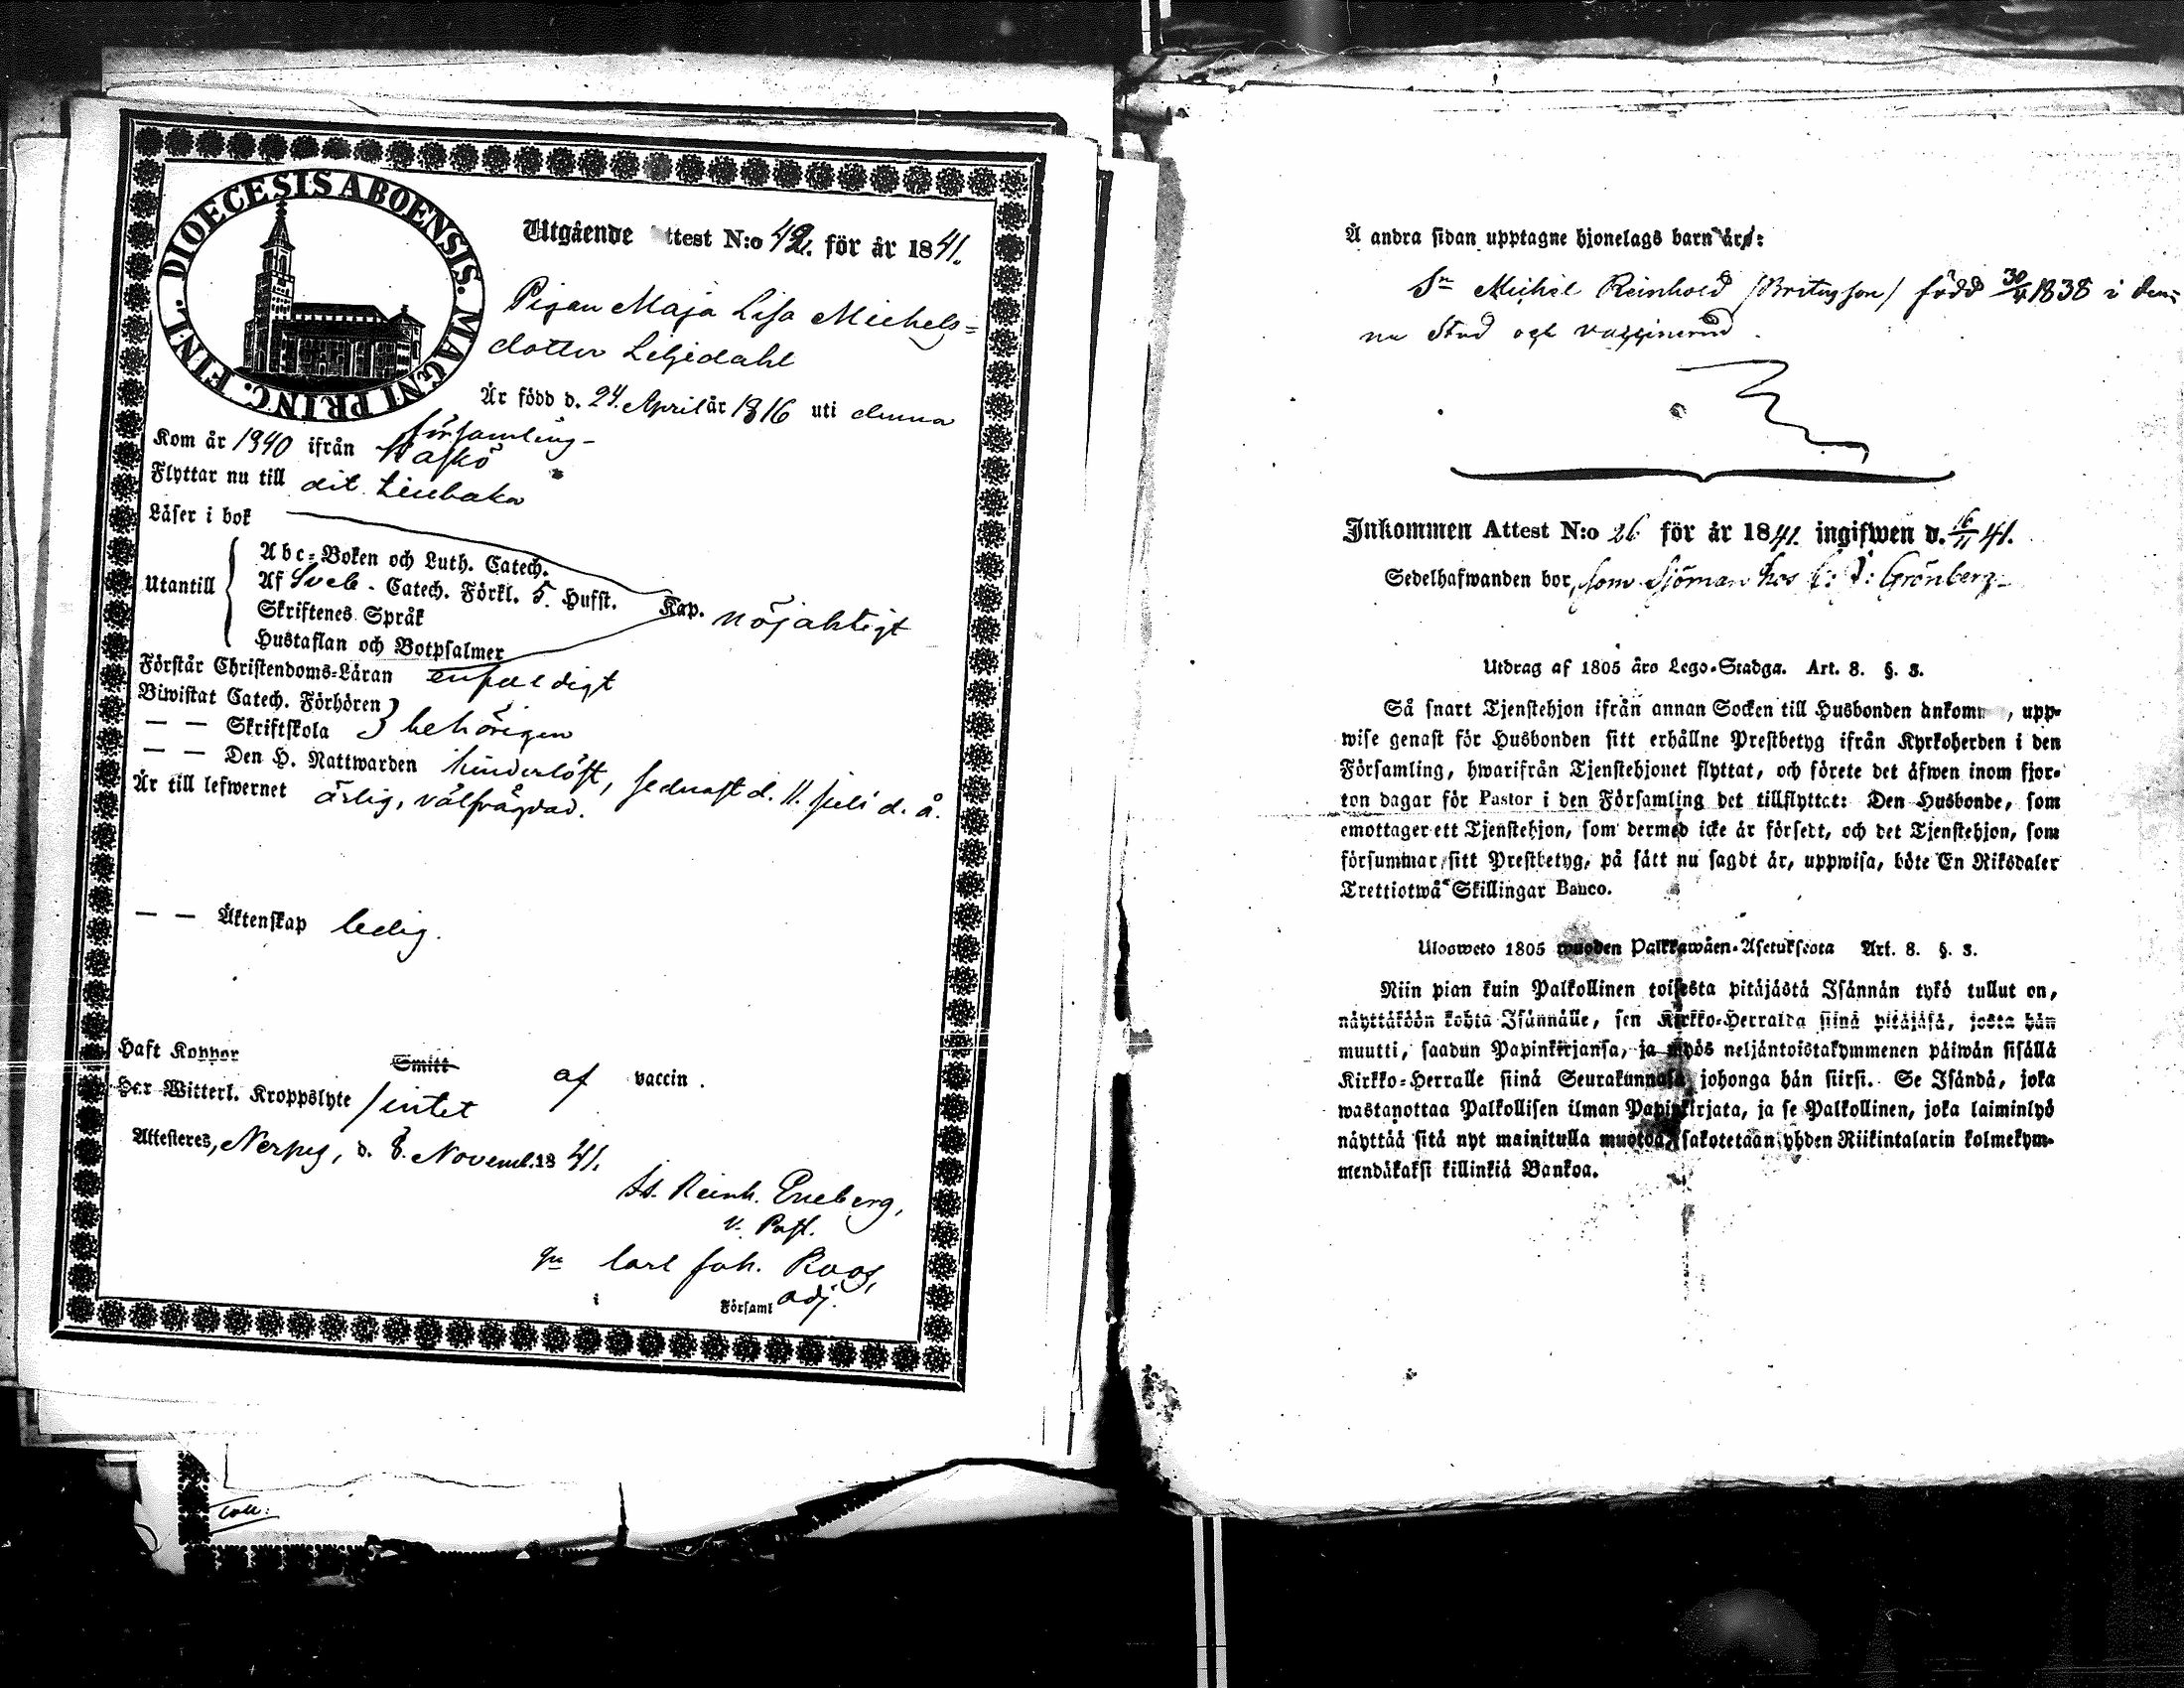 DIOECESIS ABOENSIS. MAGNI PRINC. FINL.
Utgående ttest N:o 42. för år 1841.
Pigan Maja Lisa Michels=
dotter Liljedahl
Är född d. 24. April år 1816 uti denna
församling
Kom år 1840 ifrån Kaskö
Flyttar nu till dit tillbaka
Läser i bok
Utantill
Abc=Boken och Luth. Catech.
Af Sveb. Catech. Förkl. 5. Hufst. Kap. nöjaktigt
Skriftenes Språk
Hustaflan och Botpsalmer
Förstår Christendoms=Läran enfaldigt
Biwistat Catech. Förhören
— — Skriftskola behörigen
— — Den H. Nattwarden hinderlöst, sednast d. 11. Juli d. å.
Är till lefwernet ärlig, välfrägdad.
— — Äktenskap ledig.
Haft Koppor Smitt af vaccin.
Har Witterl. Kroppslyte intet
Attesteres, Nerpes, d. 8. Novemb. 1841.
Reinh. Eneberg,
v. Past.
gm Carl Joh. Roos,
adj.
i Församl
Coll:
Å andra sidan upptagne hjonelags barn är:
Sn Michel Reinhold född 30/4 1838 i den
na Stad och vaccinerad.
Inkommen Attest N:o 26 för år 1841. ingifwen d. 16/11 41.
Sedelhafwanden bor, som Sjöman hos Grönberg
Utdrag af 1805 års Lego-Stadga. Art. 8. §. 3.
Så snart Tjenstehjon ifrån annan Socken till Husbonden ankom , upp-
wise genast för Husbonden sitt erhållne Prestbetyg ifrån Kyrkoherden i den
Församling, hwarifrån Tjenstehjonet flyttat, och förete det äfwen inom fjor-
ton dagar för Pastor i den Församling det tillflyttat: Den Husbonde, som
emottager ett Tjenstehjon, som dermed icke är försedt, och det Tjenstehjon, som
försummar sitt Prestbetyg, på sätt nu sagdt är, uppwisa, böte En Riksdaler
Trettiotwå Skillingar Banco.
Ulosweto 1805 wuoden Palkkawäen-Asetuksesta Art. 8. §. 3.
Niin pian kuin Palkollinen toisesta pitäjästä Isännän tykö tullut on,
näyttäköön kohta Isännälle, sen Kirkko=Herralda siinä pitäjäsä, josta hän
muutti, saadun Papinkirjansa, ja myös neljäntoistakymmenen päiwän sisällä
Kirkko=Herralle siinä Seurakunnasa johonga hän siirsi. Se Isändä, joka
wastanottaa Palkollisen ilman Papinkirjata, ja se Palkollinen, joka laiminlyö
näyttää sitä nyt mainitulla muotoa, sakotetaan yhden Riikintalarin kolmekym-
mendäkaksi killinkiä Bankoa.